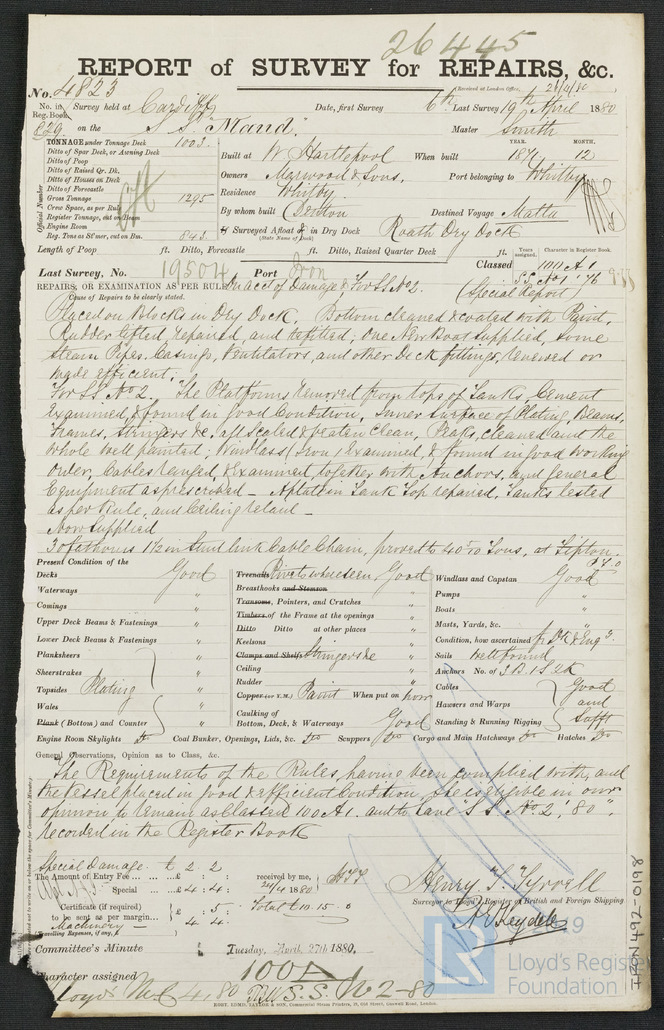 26445
REPORT of SURVEY for REPAIRS, &c.
No. 4823
(Received at London Office,
No. in Reg. Book 829 Survey held at Cardiff Date, first Survey 6th Last Survey 19th April 1880
on the S.S. "Maud". Master Smith
TONNAGE under Tonnage Deck 1003
Ditto of Spar Deck, or Awning Deck
Ditto of Poop
Ditto of Raised Qr. Dk.
Ditto of Houses on Deck
Ditto of Forecastle
Gross Tonnage 1295
Crew Space, as per Rule
Register Tonnage, cut on Beam
Engine Room
Reg. Tons as St'mer, cut on Bm. 843
Official Number
YEAR. MONTH.
Built at W Hartlepool When built 1871 12
Owners Marwood & Sons, Port belonging to Whitby
Residence Whitby
By whom built Denton Destined Voyage Malta
If Surveyed Afloat or in Dry Dock Roath Dry Dock
(State Name of Dock)
Length of Poop ft. Ditto, Forecastle ft. Ditto, Raised Quarter Deck ft.
Years assigned. Character in Register Book.
Last Survey, No. 19504 Port Iron Classed 100 A 1
SS. No 1 '76
REPAIRS, OR EXAMINATION AS PER RULE, On acct of Damage & For SS No 2. (Special Report)
Cause of Repairs to be clearly stated.
Placed on Blocks in Dry Dock, Bottom cleaned & coated with Paint,
Rudder lifted, repaired, and refitted; One New Boat supplied, some
Steam Pipes, Casings, Ventilators, and other Deck fittings, renewed or
made efficient.
For SS No 2. The Platforms removed from tops of Tanks, Cement
examined, & found in Good Condition, Inner Surface of Plating, Beams,
Frames, Stringers &c. all scaled & beaten clean, Peaks, cleaned and the
whole well painted; Windlass (Iron) examined, & found in good working
order, Cables ranged & examined together with Anchors, and General
Equipment as prescribed — in Tank Top repaired, Tanks tested
as per Rule, and Ceiling relaid —
Now supplied
30 fathoms 1 1/2 in Stud link Cable Chain, proved to Tons, at Tipton.
Present Condition of the
Decks Good
Waterways "
Comings "
Upper Deck Beams & Fastenings "
Lower Deck Beams & Fastenings "
Planksheers "
Sheerstrakes "
Topsides Plating "
Wales "
Plank (Bottom) and Counter "
Treenails Rivets where seen, Good
Breasthooks and Stemson "
Transoms, Pointers, and Crutches "
Timbers of the Frame at the openings "
Ditto Ditto at other places "
Keelsons "
Clamps and Shelfs Stringers &c "
Ceiling "
Rudder "
Copper (or Y.M.) Paint When put on now
Caulking of
Bottom, Deck, & Waterways Good
Windlass and Capstan Good
Pumps "
Boats "
Masts, Yards, &c. "
Condition, how ascertained
Sails well found
Anchors No. of 3 B. 1 S. 2 K
Cables Good
Hawsers and Warps and
Standing & Running Rigging Safft
Engine Room Skylights Do Coal Bunker, Openings, Lids, &c. Do Scuppers Do Cargo and Main Hatchways Do Hatches Do
General Observations, Opinion as to Class, &c.
The Requirements of the Rules, having been complied with, and
the Vessel placed in Good & efficient Condition, she is eligible in our
opinion to remain as Classed 100 A1. and to have "S.S. No. 2, '80",
recorded in the Register Book
Special Damage £ 2 . 2
The Amount of Entry Fee ... £ : : received by me,
Special ... £ 4 : 4 : 24/4 1880
Certificate (if required) £ : 5 : Total £10 . 15 . 0
to be sent as per margin...
Machinery — 4 4
(Travelling Expenses, if any, £ )
Henry T. Tyrrell
Surveyor to Lloyd's Register of British and Foreign Shipping.
Committee's Minute Tuesday, April 27th 1880.
Character assigned 100A1
Lloyd's M.C 4,80 S.S. No 2-80
ROBT. EDMD. TAYLOR & SON, Commercial Steam Printers, 19, Old Street, Goswell Road, London.
IRON492-0198
Lloyd's Register
Foundation